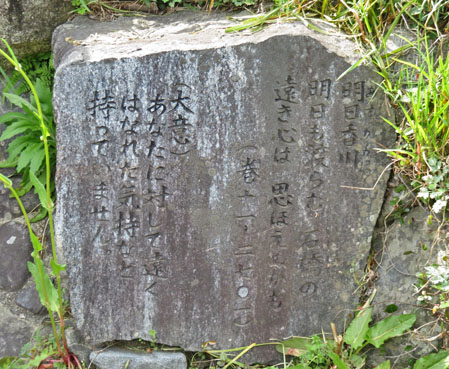 明日香川
明日も渡らむ石橋の
遠き心は思ほえぬかも
(巻十一・二七〇一)
(大意)
あなたに対して遠く
はなれた気持など
持っていません。